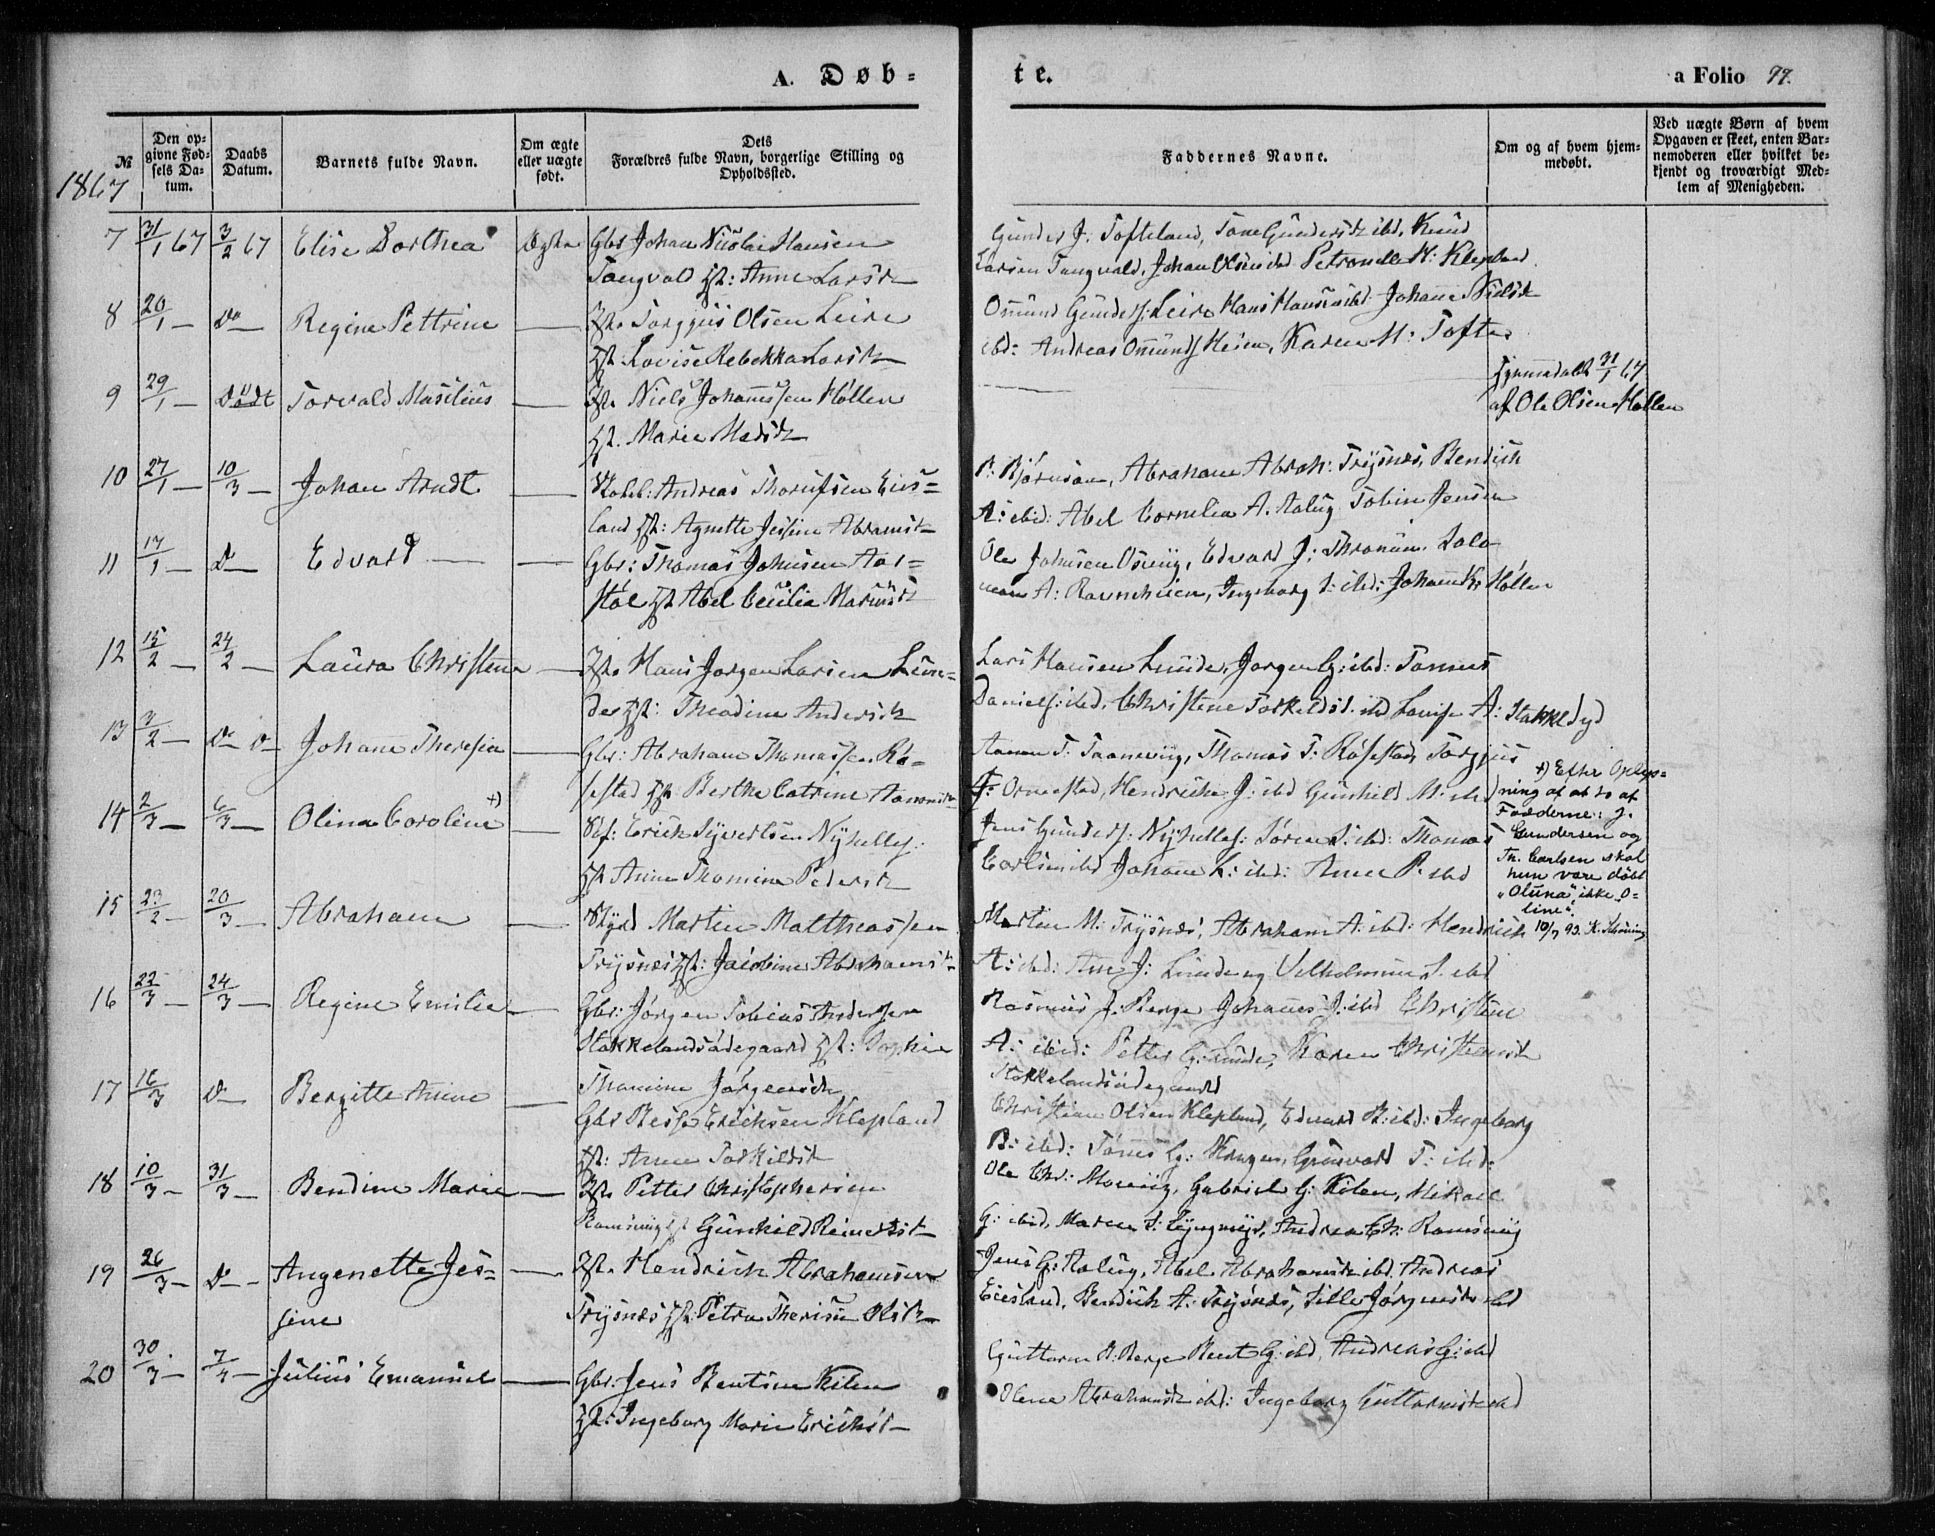 A. Døb-
te.
a Folio 77.
№
Den op-
givne Fød-
sels Da-
tum.
Daabs
Datum.
Barnets fulde Navn.
Om ægte
eller uægte
født.
Dets
Forældres fulde Navn, borgerlige Stilling og
Opholdssted.
Faddernes Navne.
Om og af hvem hjem-
medøbt.
Ved uægte Børn af hvem
Opgaven er skeet, enten Bar-
nemoderen eller hvilket be-
kjendt og troværdigt Med-
lem af Menigheden.
1867
7 31/1 67 3/2 67 Elise Dorthea Ægte Gbr Johan Nicolai Hansen
Tangvald Hst: Anne Larsdt
Gunder J. Tofteland, Tone Gundersdt ibd, Knud
Larsen Tangvald, Johan Olsen ibd Petronelle H: Klepland
8 20/1 — Do — Regine Pettrine — Hst Torggus Olsen Leire
Hst Lovise Rebekka Larsdt
Omund Gunders: Leire Hans Hansen ibd: Johanne Nielsdt
ibd: Andreas Omunds Heien, Karen M: Tofte
9 29/1 — Dødt Torvald Masilius — Hst Niels Johannssen Høllen
Hst. Marie Madsdt
Hjemmedøbt 31/1 67
af Ole Olsen Høllen
10 27/1 — 10/3 — Johan Arndt — Andreas Eies-
land Hst: Agnette Jessine Abramsdt
P: Bjørnson, Abraham Abrah: Trysnes, Bendich
A: ibid: Abel Cornelia A. Aalug Tobine Jensen
11 17/1 — Do — Edvard — — Gbr: Thomas Johnsen Aar-
støl Hst Abel Cecilia
Ole Johnsen Edvard J: Salo-
mon A: Ravnehei, Ingeborg ibd: Johanne Høllen
12 15/2 — 24/2 — Laura Christine — Hst Hans Jørgen Larsen Lun-
de Hst: Theodine Andersdt
Lars Hansen Lunde, Jørgen G: ibd: Tønnes
Daniels: ibd, Christene Torkeldsd. ibd Lovise A: Stakkedyd
13 3/2 — Do Do — Johanne Theresia — Gbr: Abraham Thomassen Rø-
sestad Hst Berthe Catrine Aanonsdt
Aanon T: Thomas T: Røsestad, Torgjus
T: Ormestad, Hendricke J: ibd Gunhild M: ibd
14 2/3 — 6/3 — Olina Caroline +) — Erick Syvertsen Nyhelles:
Hst Anne Thomine Pedersdt
Jens Gunders: Nyhelles: Søren S: ibd: Thomas
Carlsen ibd Johanne K: ibd: Anne P: ibd
+) Efter Oplys-
ning af at to af
Fadderne: J.
Gundersen og
Th. Carlsen skal
hun være døbt
„Oluna", ikke „O-
line".
10/7 93. K. Schøning
15 23/2 — 20/3 — Abraham — Martin Matthæassen
Trysnes Hst: Jacobine Abrahamsdt
Martin M: Trysnes, Abraham A: ibd: Hendrich
A: ibd: Ane J: Lunde og Vilhelmine S. ibd
16 22/3 — 24/3 — Regine Emilie — Gbr: Jørgen Tobias Andersen
Stakkelandsødegaard Hst: Sophie
Thomine Jørgensdt
Rasmus J: Berge Johannes J: ibd Christine
A: ibid: Petter G: Lunde, Karen Christensdt
Stakkelandsødegaard
17 16/3 Do — Bergitte Anne — Gbr Besse Ericksen Klepland
Hst: Anne Torkildsdt
Christian Olsen Klepland, Edvard B: ibd: Ingeborg
B: ibd: Tønnes G: Gunvald T: ibd:
18 10/3 — 31/3 — Bendine Marie — Hst Petter Christophersen
Hst Gunhild Reinertsdt
Ole Chr: Gabriel G: Kilen, Mikael
G: ibid, Maren T: Lyngmyr, Andrea Ch: Ramsvig
19 26/3 — Do — Angenette Jes- — Hst Hendrich Abrahamsen
sine Trysnes Hst: Petra Therisie Olsdt
Jens G: Aalug, Abel Abrahamsdt ibd. Andreas
Eiesland, Bendich A: Trysnes, Sille Jørgensdt ibd
20 30/3 — 7/4 — Julius Emanuel — Gbr: Jens Bentsen Kilen
Hst: Ingeborg Marie Ericksdt
Guttorm B: Berge Bent G: ibd, Andreas G: ibd
Olene Abrahamsdt ibd: Ingeborg Guttormsdt ibd